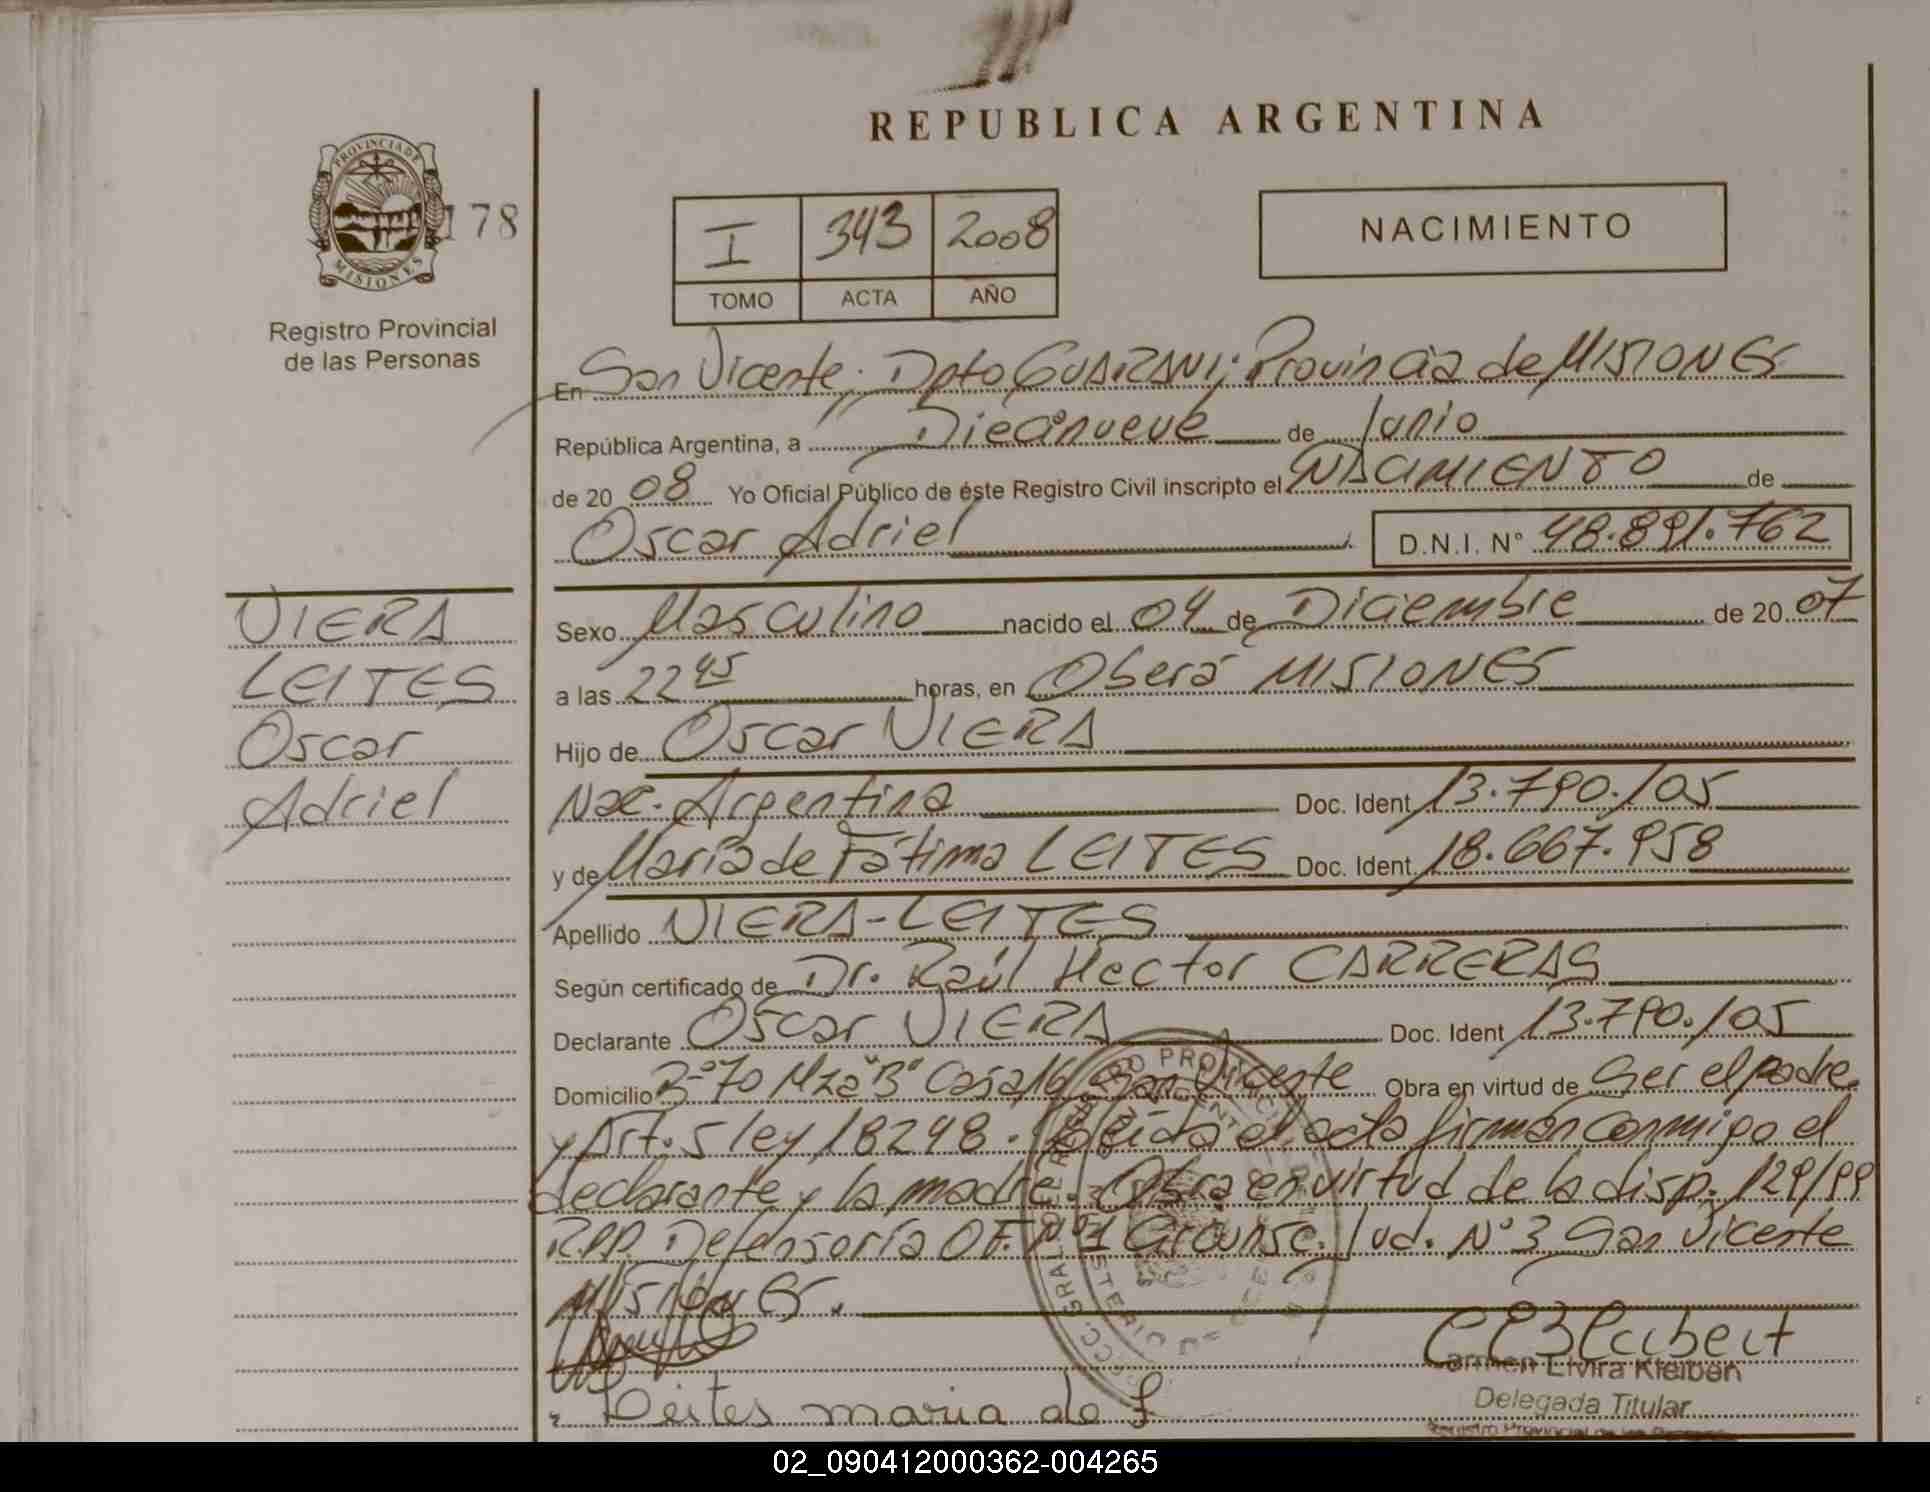 REPUBLICA ARGENTINA
PROVINCIA DE
MISIONES
178
Registro Provincial
de las Personas
I 343 2008
TOMO ACTA AÑO
NACIMIENTO
En San Vicente, Dpto GUARANI; Provincia de MISIONES
República Argentina, a Diecinueve de Junio
de 20 08 Yo Oficial Público de éste Registro Civil inscripto el NACIMIENTO de
Oscar Adriel D.N.I. N° 48.891.762
VIERA
LEITES
Oscar
Adriel
Sexo Masculino nacido el 04 de Diciembre de 20 07
a las 22 45 horas, en Oberá MISIONES
Hijo de Oscar VIERA
Nac. Argentina Doc. Ident 13.790.105
y de María de Fátima LEITES Doc. Ident. 18.667.958
Apellido VIERA-LEITES
Según certificado de Dr. Raúl Hector CARRERAS
Declarante Oscar VIERA Doc. Ident 13.790.105
Domicilio B-°70 Mza "B" Casa 16 San Vicente Obra en virtud de Ser el padre
y Art. 5 ley 18248. Leída el acta firman conmigo el
declarante y la madre. Obra en virtud de la disp. 129/99
R.P.P. Defensoría OF. N°1 Circunsc. Jud. N°3 San Vicente
MISIONES.
Leites maria de f
Carmen Elvira Kleiben
Delegada Titular
Registro Provincial de las Personas
02_090412000362-004265